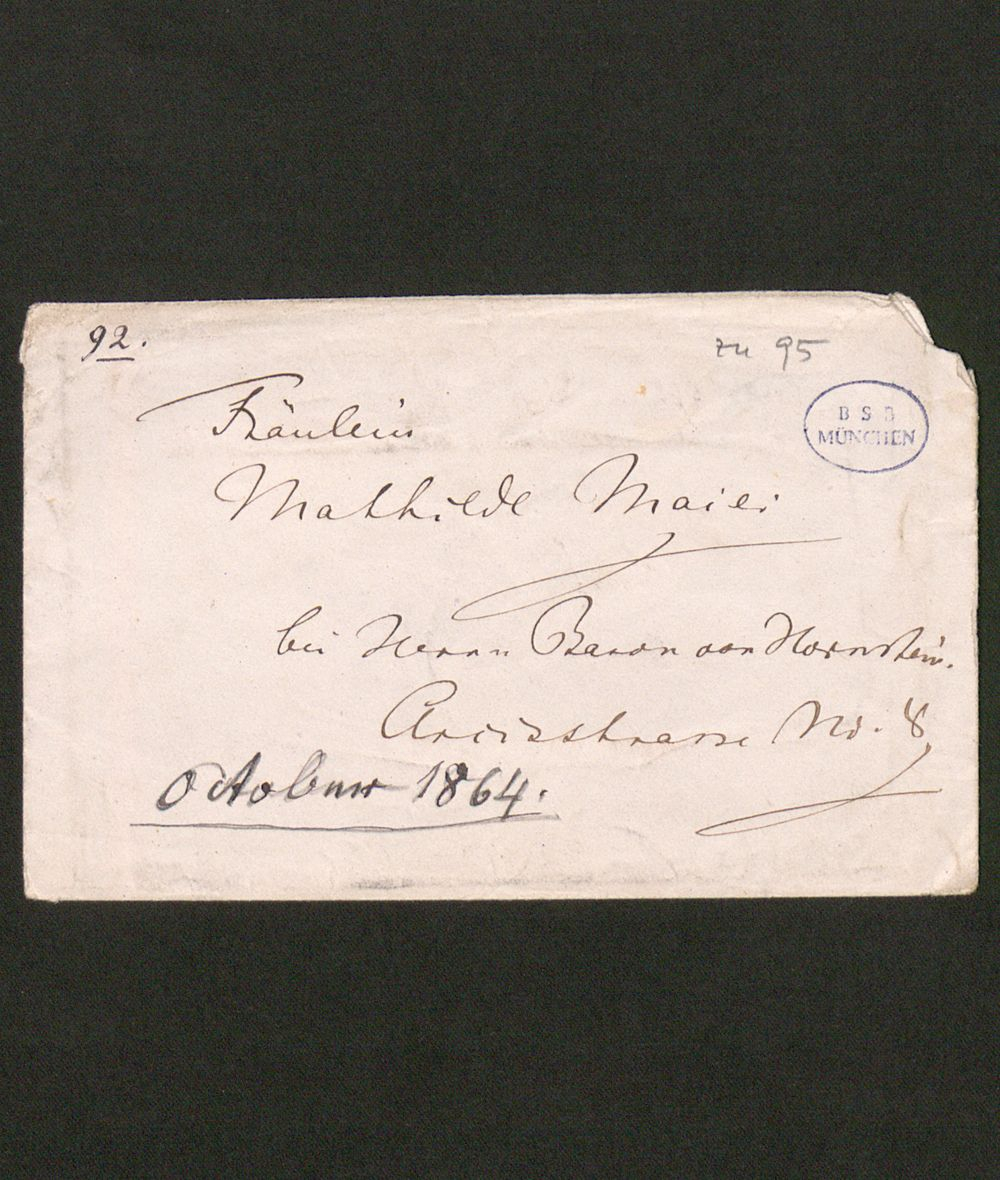 92.
zu 95
B S B
MÜNCHEN
Fräulein
Mathilde Maier
bei Herrn Baron von Hornstein.
Arcisstrasse No. 8
October 1864.